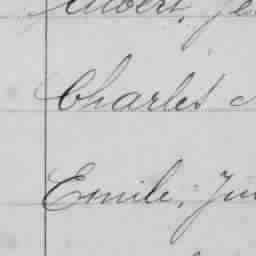 Albert, Je
Charles
Emile, Ju